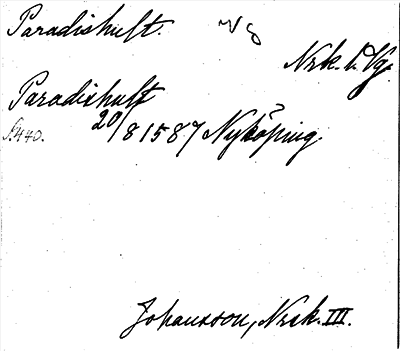 Paradishult.
Vg
Nrk. l. Vg.
Paradishult
20/8 1587 Nyköping.
S. 440.
Johansson, Nrsk. III.